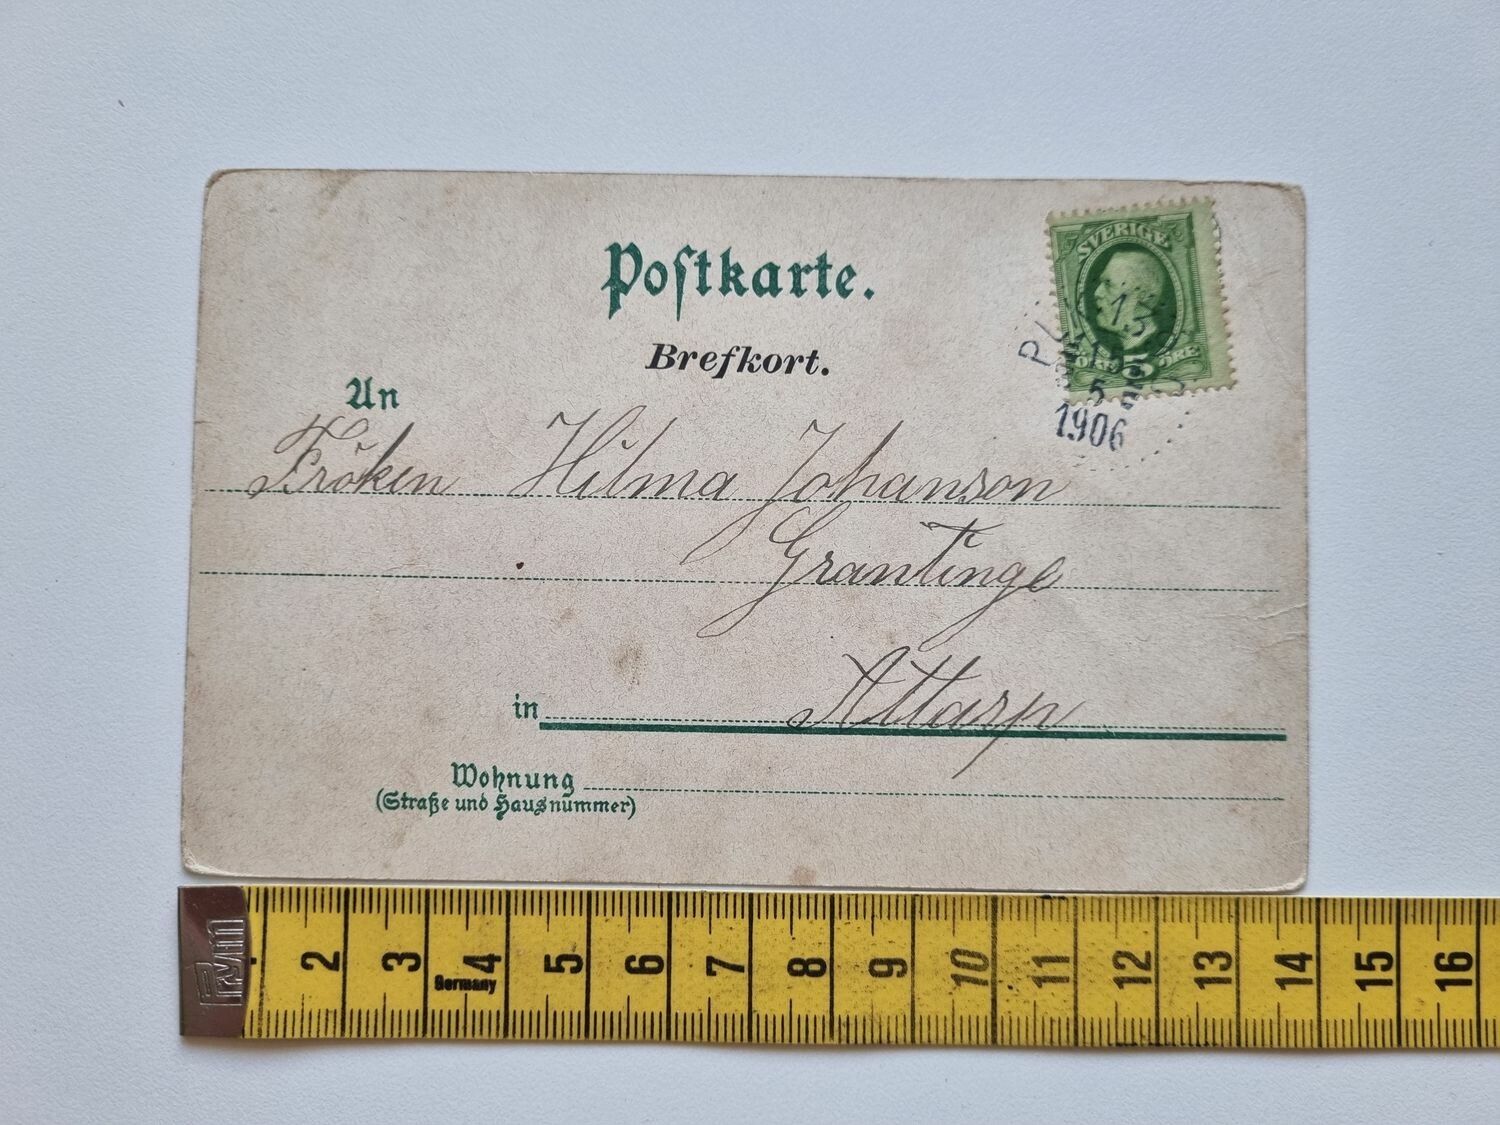 Postkarte.
Brefkort.
SVERIGE
5
ÖRE
15
5
1906
An
Fröken Hilma Johanson
Grantinge
in Attarp
Wohnung
(Straße und Hausnummer)
Prym
2 3 4 5 6 7 8 9 10 11 12 13 14 15 16
Germany